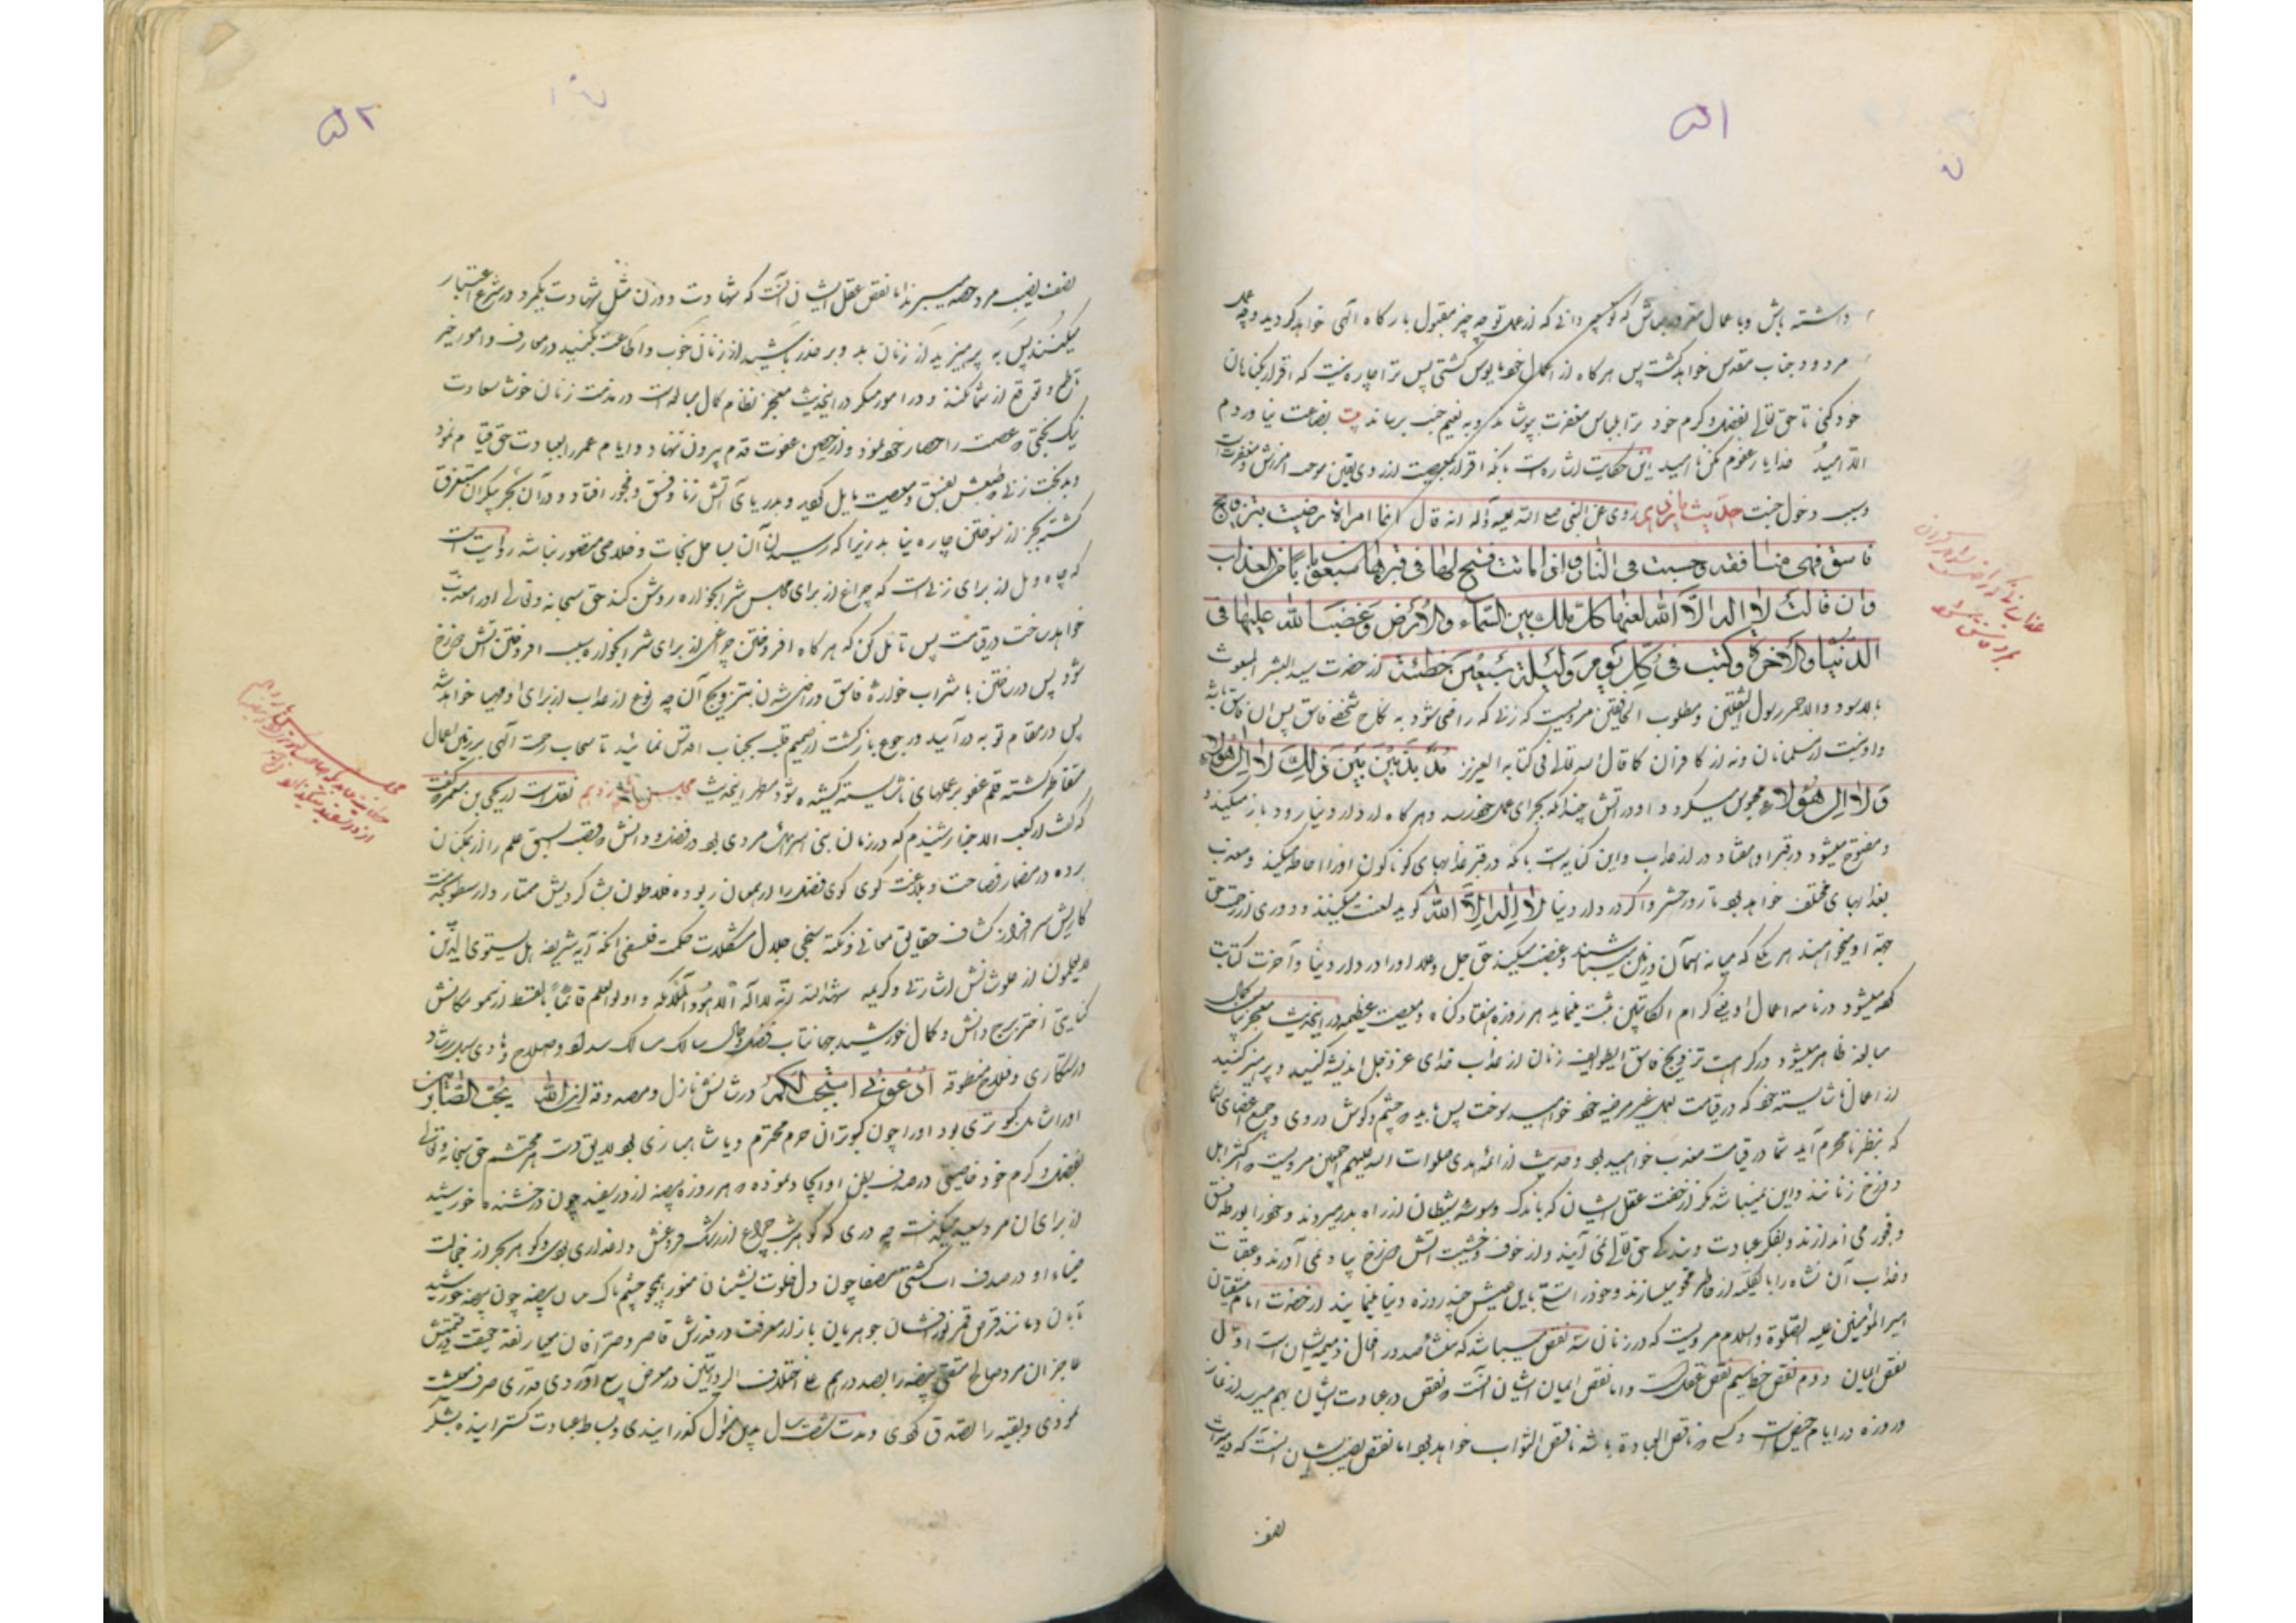 ۵۱
داشته باش و با عمال مغرور مباش که تو نمیدانی که از عمل تو چه چیز مقبول بارگاه الهی خواهد گردید و چه عمل
مردود جناب مقدس خواهد گشت پس هرگاه از اعمال خود مایوس گشتی پس ترا چاره نیست که اقرار بگناهان
خود کنی تا حق تعالی بفضل و کرم خود ترا بلباس مغفرت بپوشاند و به نعیم جنت برساند بیت بضاعت نیاوردم
الا امید خدایا ز عفوم مکن ناامید این حکایت اشاره است بانکه اقرار بمعصیت از روی یقین موجب آمرزش و مغفرت
و سبب دخول جنت حدیث پانزدهم روی عن النبی صلی الله علیه و آله انه قال ایما امراة رضیت بتزویج
فاسق فهی منافقه و حسبت فی النار و اذا ماتت فتح لها فی قبرها سبعون بابا من العذاب
وان قالت لا اله الا الله لعنها کل ملک بین السماء والارض و غضب الله علیها فی
الدنیا والاخرة وکتب فی کل یوم ولیلة سبعین خطیئة از حضرت سید البشر المبعوث
بالاسود والاحمر رسول الثقلین و مطلوب الخافقین مرویست که زنی که راضی شود به نکاح شخصی فاسق پس آن فاسق باشد
و او نیست از مسلمانان و نه از کافران کما قال الله تعالی فی کتابه العزیز مذبذبین بین ذلک لا الی هولاء
ولا الی هولاء محبوس میگردد او در آتش چندانکه بجزای عمل خود رسد و هرگاه از دار دنیا رود باز میکنند
و مفتوح میشود در قبر او هفتاد در از عذاب و این کنایه است بانکه در قبر عذابهای گوناگون او را احاطه میکند و معذب
بعذابهای مختلف خواهد بود تا روز حشر و اگر در دار دنیا لا اله الا الله گوید لعنت میکنند و دوری از رحمت حق
جهة او میخواهند هر ملکی که میانه آسمان و زمین میباشند و غضب میکند حق جل و علا او را در دار دنیا و آخرت کتابت
کرده میشود در نامه اعمال او یعنی کرام الکاتبین ثبت مینماید هر روزه هفتاد گناه و معصیت عظیمه در این حدیث معجز بیان کمال
مبالغه ظاهر میشود در کراهت تزویج فاسق ایطوایف زنان از عذاب خدای عز و جل اندیشه کنید و پرهیز کنید
از اعمال ناشایسته خود که در قیامت بعمل غیر مرضیه خود خواهید سوخت پس باید چشم و گوش در روی و جمیع اعضای شما
که بنظر نامحرم آید شما در قیامت معذب خواهید بود و حدیث از ائمه هدی صلوات الله علیهم اجمعین مرویست که اکثر اهل
دوزخ زنانند و این نمیباشد مگر از خفت عقل ایشان که باندک وسوسه شیطان از راه بدر میروند و خود را بورطه فسق
و فجور می اندازند و بفکر عبادت و بندگی حق تعالی نمی آیند و از خوف و خشیت آتش دوزخ بیاد نمی آورند و عقبات
و عذاب آن نشاه را بالکلیه از خاطر محو میسازند و خود را مایل بعیش چند روزه دنیا مینمایند از حضرت امام متقیان
امیر المؤمنین علیه الصلوة والسلام مرویست که در زنان سه نقص میباشد که منشأ صدور افعال ذمیمه ایشان است اول
نقص ایمان دوم نقص حظ سیم نقص عقلست و اما نقص ایمان ایشان آنست که نقص در عبادت ایشان بهم میرسد از نماز
و روزه در ایام حیض است و کسی که ناقص العباده باشد ناقص الثواب خواهد بود اما نقص نصیب ایشان آنست که در میراث
نصف
عذاب زنی که راضی شود
بمرد فاسق
۵۲
نصف نصیب مرد حصه میبرند اما نقص عقل ایشان آنست که شهادت دو زن مثل شهادت یکمرد در شرع اعتبار
میکنند پس به پرهیزید از زنان بد و بر حذر باشید از زنان خوب و اطاعت مکنید در معارف و امور خیر
طمع و توقع از شما نکنند و در امور منکر در این حدیث معجز نظام کمال مبالغه است در مذمت زنان خوشا سعادت
نیک بختی که عصمت را حصار خود نمود و از حصن عفت قدم بیرون ننهاد و ایام عمر را بعبادت حق قیام نمود
و بدبخت زنی که طبعش بفسق و معصیت مایل گردید و بدریای آتش زنا و فسق و فجور افتاد و در آن بحر بیکران مستغرق
گشته بجز از سوختن چاره نیابد زیرا که رسیدن آن بساحل نجات و خلاصی متصور نباشد روایت است
که چاه ویل از برای زنی است که چراغ از برای مجلس شرابخواره روشن کند حق سبحانه و تعالی او را معذب
خواهد ساخت در قیامت پس تامل کن که هرگاه افروختن چراغی از برای شرابخواره سبب افروختن آتش دوزخ
شود پس در ساختن با شراب خواره فاسق و راضی شدن بتزویج آن چه نوع از عذاب از برای او مهیا خواهد شد
پس در مقام توبه در آیید و رجوع بازگشت از صمیم قلب بجناب اقدس نمایند تا سحاب رحمت الهی بر زمین اعمال
متقاطر گشته قلم عفو بر عملهای ناشایسته کشیده شود مطهر این حدیث مجلس پانزدهم نقلست از یحیی بن معمر که گفت
که گفت از کعب الاحبار شنیدم که در زمان بنی اسرائیل مردی بود در فضل و دانش قصب السبق علم را از همگنان
برده در مضمار فصاحت و بلاغت گوی گوی فضل را از همگنان ربوده فلاطون بشاگردیش ممتاز و ارسطو بخدمت
گاریش سرافراز کشاف حقایق معانی و نکته سنجی حلال مشکلات حکمت فلسفی انکه آیه شریفه هل یستوی الذین
لا یعلمون از علو شانش اشارتی و کریمه شهد الله انه لا اله الا هو والملائکة و اولوا العلم قائما بالقسط از سمو مکانش
کنایتی اختر برج دانش و کمال خورشید جهانتاب فضل و جمال سالک مسالک سداد و صلاح و هادی سبیل رشاد
رستکاری و فلاح منطوقه ادعونی استجب لکم در شانش نازل و مصدوقه ان الله یحب الصابرین
او را کبوتری بود او را چون کبوتران حرم محترم و یا شاهبازی بود لایق دست هر محتشم حق سبحانه و تعالی
بفضل و کرم خود خاصیتی در صدف بطن او ایجاد نموده که هر روزه بیضه از در سفید چون درخشنده خورشید
از برای آن مرد سعید میگذاشت چه دری که گوهر شب چراغ از رشک فروغش داغداری بودی و گوهر بحر از خجالت
ضیاء او در صدف آب گشتی بیضا چون دل خلوت نشینان منور همچو چشم پاک مدان بیضه چون بیضه خورشید
تابان و مانند قرص قمر نور افشان جوهریان بازار معرفت در قدرش قاصر و صرافان معیار نقد حقیقت در قیمتش
عاجز آن مرد صالح متقی بیضه را بصد درهم علی اختلاف الروایتین در معرض بیع آوردی قدری صرف معیشت
نمودی و بقیه را تصدق کردی و مدت شصت سال بدین منوال گذرانیدی و بساط عبادت گسترانیده بشکر